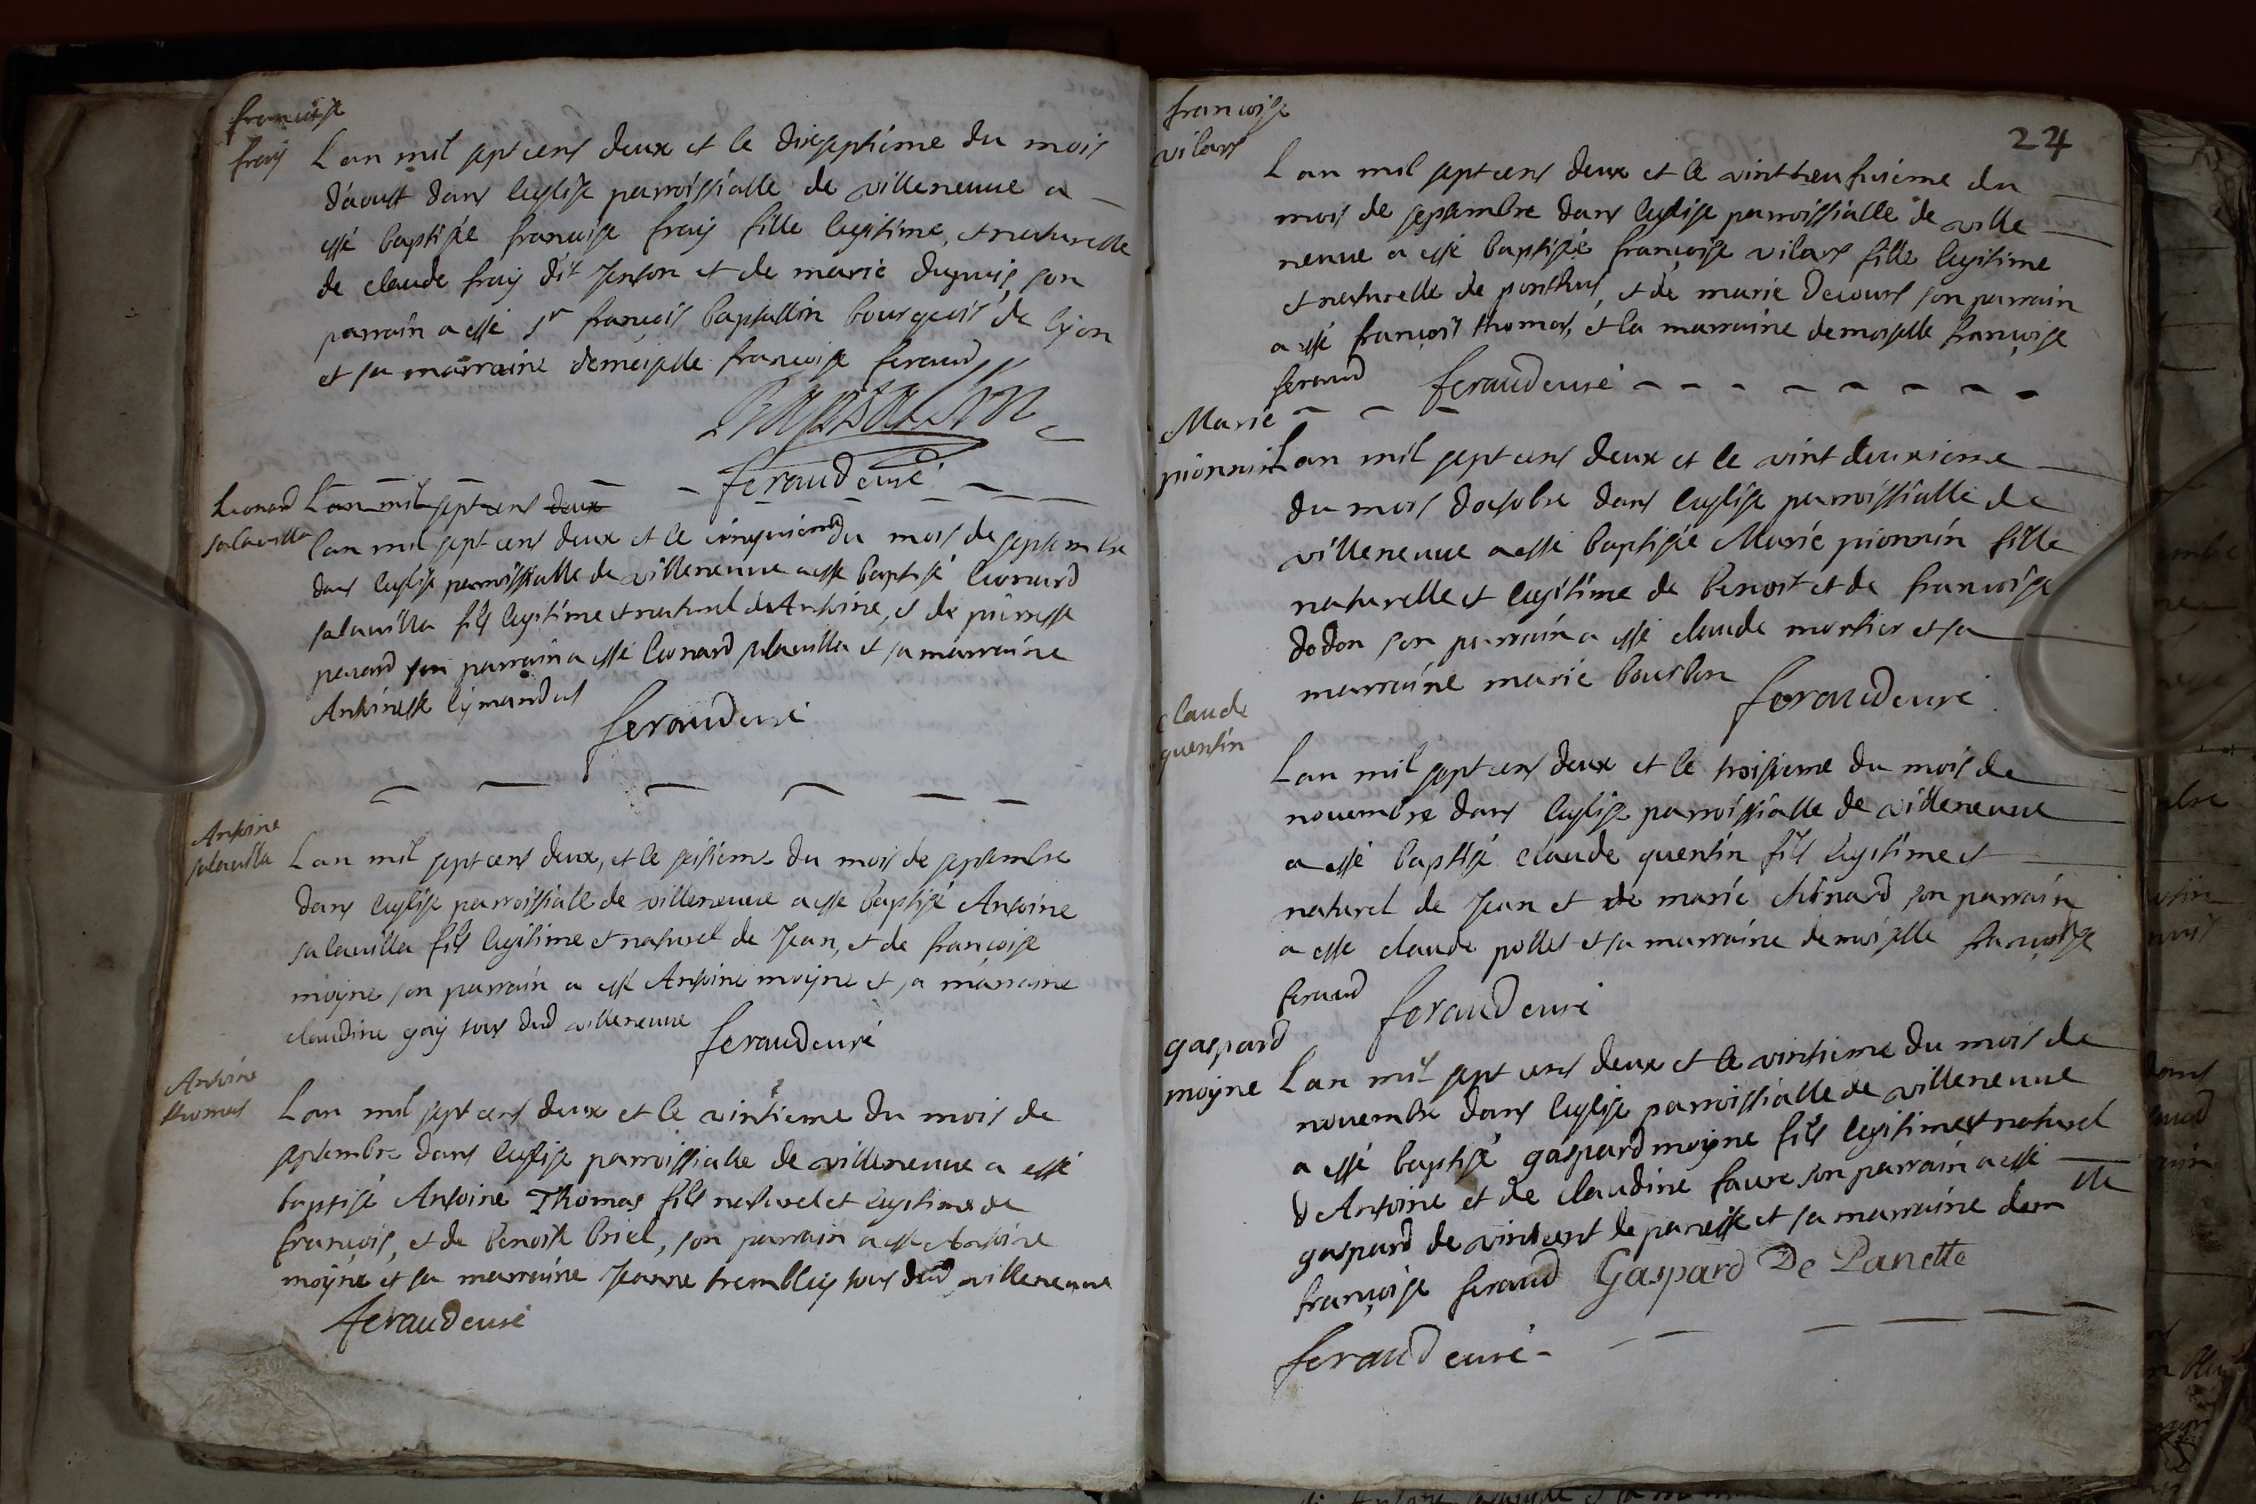 francoise
fraij
Lan mil sept cens deux et le diseptiéme du mois
daoust dans leglise parroissialle de villeneuue a
esté baptisée francoise fraij fille legitime, et naturelle
de claude fraij dit Jenson et de marie dupuis, son
parrain a esté sr francois baptallin bourgeois de lyon
et sa marraine demoiselle francoise feraud
Baptallin
feraud curé
Leonard
salauilla
Lan mil sept cens deux
lan mil sept cens deux et le cinquieme du mois de septembre
dans leglise parroissialle de villeneuue a esté baptisé leonard
salauilla fils legitime et naturel de Antoine, et de pierresse
perard son parrain a esté leonard salauilla et sa marraine
Antoinesse lijmandas
feraud curé
Antoine
salauilla
Lan mil sept cens deux, et le seisieme du mois de septembre
dans leglise parroissialle de villeneuue a esté baptisé Antoine
salauilla fils legitime et naturel de Jean, et de françoise
moijne son parrain a esté Antoine moijne et sa marraine
claudine gaij tous dud villeneuue
feraud curé
Antoine
thomas
Lan mil sept cens deux et le vintieme du mois de
septembre dans leglise parroissialle de villeneuue a esté
baptisé Antoine Thomas fils naturel et legitime de
françois, et de benoiste briel, son parrain a esté Antoine
moijne et sa marraine Jeanne trembleij tous dud villeneuue
feraud curé
24
francoise
vilars
Lan mil sept cens deux et le vint neufuiéme du
mois de septembre dans leglise parroissialle de ville
neuue a esté baptisée françoise vilars fille legitime
et naturelle de ponthus, et de marie Decours son parrain
a esté françois thomas, et la marraine demoiselle françoise
feraud feraud curé
Marie
pionnin
Lan mil sept cens deux et le vint deuxieme
du mois doctobre dans leglise parroissialle de
villeneuue a esté baptisée Marie pionnin fille
naturelle et legitime de benoist et de francoise
dodon son parrain a esté claude mortier et sa
marraine marie bourbon
feraud curé
claude
quentin
Lan mil sept cens deux et le troisieme du mois de
nouembre dans leglise parroissialle de villeneuue
a esté baptisé claude quentin fils legitime et
naturel de Jean et de marie chênard son parrain
a esté claude pollet et sa marraine demoiselle françoise
feraud feraud curé
gaspard
moijne
Lan mil sept cens deux et le vintieme du mois de
nouembre dans leglise parroissialle de villeneuue
a esté baptisé gaspard moijne fils legitime et naturel
d Antoine et de claudine faure son parrain a esté
gaspard de vincent de panette et sa marraine demlle
françoise feraud Gaspard De Panette
feraud curé